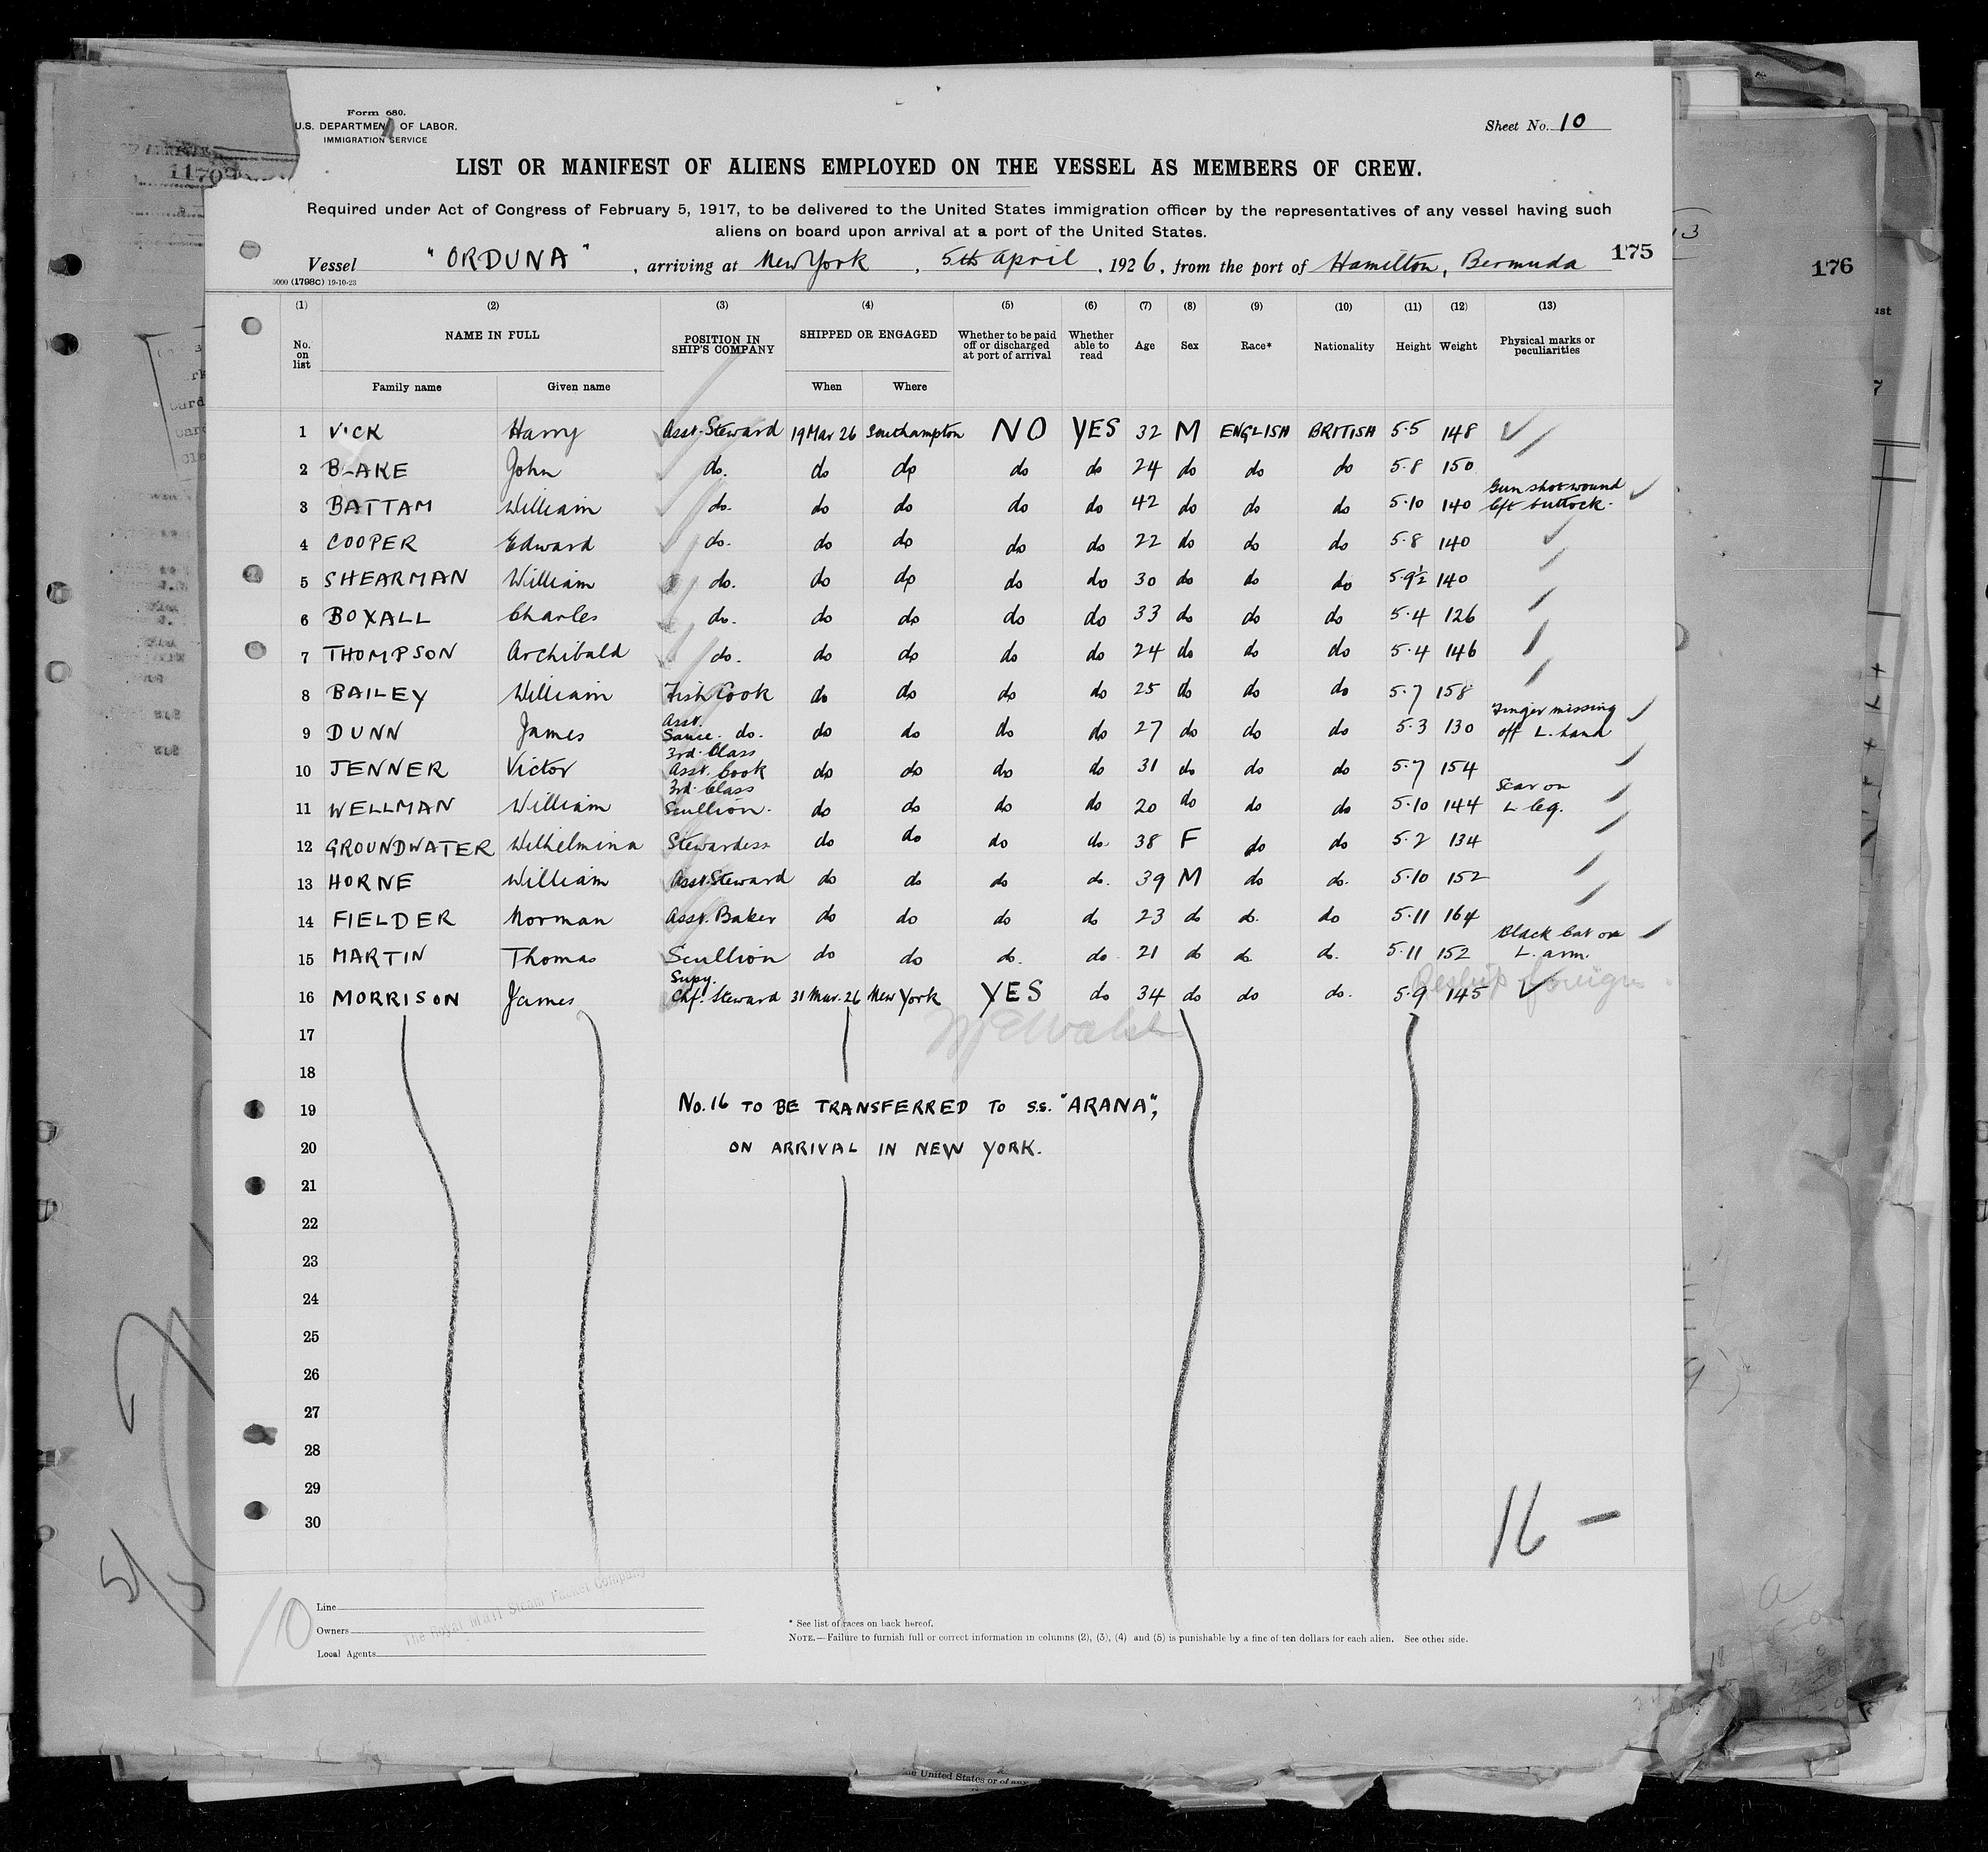 Form 680.
U.S. DEPARTMENT OF LABOR.
IMMIGRATION SERVICE
Sheet No. 10
LIST OR MANIFEST OF ALIENS EMPLOYED ON THE VESSEL AS MEMBERS OF CREW.
Required under Act of Congress of February 5, 1917, to be delivered to the United States immigration officer by the representatives of any vessel having such
aliens on board upon arrival at a port of the United States.
175
176
Vessel "ORDUNA", arriving at New York, 5th April, 1926, from the port of Hamilton, Bermuda
5000 (1798C) 19-10-23
(1) (2) (3) (4) (5) (6) (7) (8) (9) (10) (11) (12) (13)
No. on list NAME IN FULL POSITION IN SHIP'S COMPANY SHIPPED OR ENGAGED Whether to be paid off or discharged at port of arrival Whether able to read Age Sex Race* Nationality Height Weight Physical marks or peculiarities
Family name Given name When Where
1 VICK Harry Asst. Steward 19 Mar 26 Southampton NO YES 32 M ENGLISH BRITISH 5.5 148
2 BLAKE John do. do do do do 24 do do do 5.8 150
3 BATTAM William do. do do do do 42 do do do 5.10 140 Gun shot wound left buttock.
4 COOPER Edward do. do do do do 22 do do do 5.8 140
5 SHEARMAN William do. do do do do 30 do do do 5.9½ 140
6 BOXALL Charles do. do do do do 33 do do do 5.4 126
7 THOMPSON Archibald do. do do do do 24 do do do 5.4 146
8 BAILEY William Fish Cook do do do do 25 do do do 5.7 158
9 DUNN James Asst. Sauce. do. do do do do 27 do do do 5.3 130 Finger missing off L. hand
10 JENNER Victor 3rd. Class Asst. Cook do do do do 31 do do do 5.7 154
11 WELLMAN William 3rd. Class Scullion. do do do do 20 do do do 5.10 144 Scar on L leg.
12 GROUNDWATER Wilhelmina Stewardess do do do do. 38 F do do 5.2 134
13 HORNE William Asst. Steward do do do do. 39 M do do. 5.10 152
14 FIELDER Norman Asst. Baker do do do do 23 do do. do 5.11 164
15 MARTIN Thomas Scullion do do do. do 21 do do. do. 5.11 152 Black Cat on L. arm.
16 MORRISON James Supy. Chf. Steward 31 Mar. 26 New York YES do 34 do do do. 5.9 145
17
18
19 No. 16 TO BE TRANSFERRED TO S.S. "ARANA",
20 ON ARRIVAL IN NEW YORK.
21
22
23
24
25
26
27
28
29
30
16 —
10
Line
Owners
Local Agents
The Royal Mail Steam Packet Company
* See list of races on back hereof.
NOTE.—Failure to furnish full or correct information in columns (2), (3), (4) and (5) is punishable by a fine of ten dollars for each alien. See other side.
the United States or of any